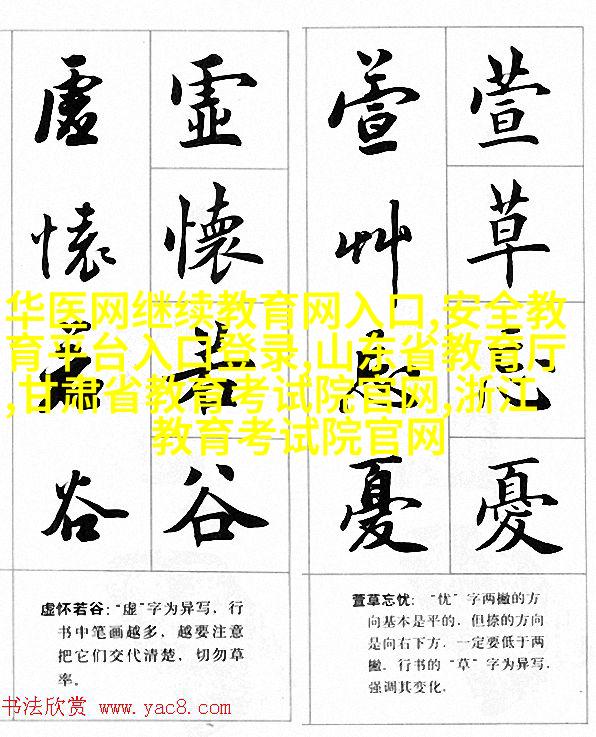 虚 虚 萱 萱
怀 懷 艸 草
若 若 忘 忘
谷 谷 憂 憂
华医网继续教育网入口,安全教
育平台入口登录,山东省教育厅
,甘肃省教育考试院官网,浙江
教育考试院官网
虚怀若谷:“虚”字为异写,行
书中笔画越多,越要注意
把它们交代清楚,切勿草
率。
萱草忘忧:“忧”字两撇的方
向基本是平的,但捺的方向
是向右下方,一定要低于两
撇。行书的“草”字为异写,
强调其变化。
书法欣赏 www.yac8.com